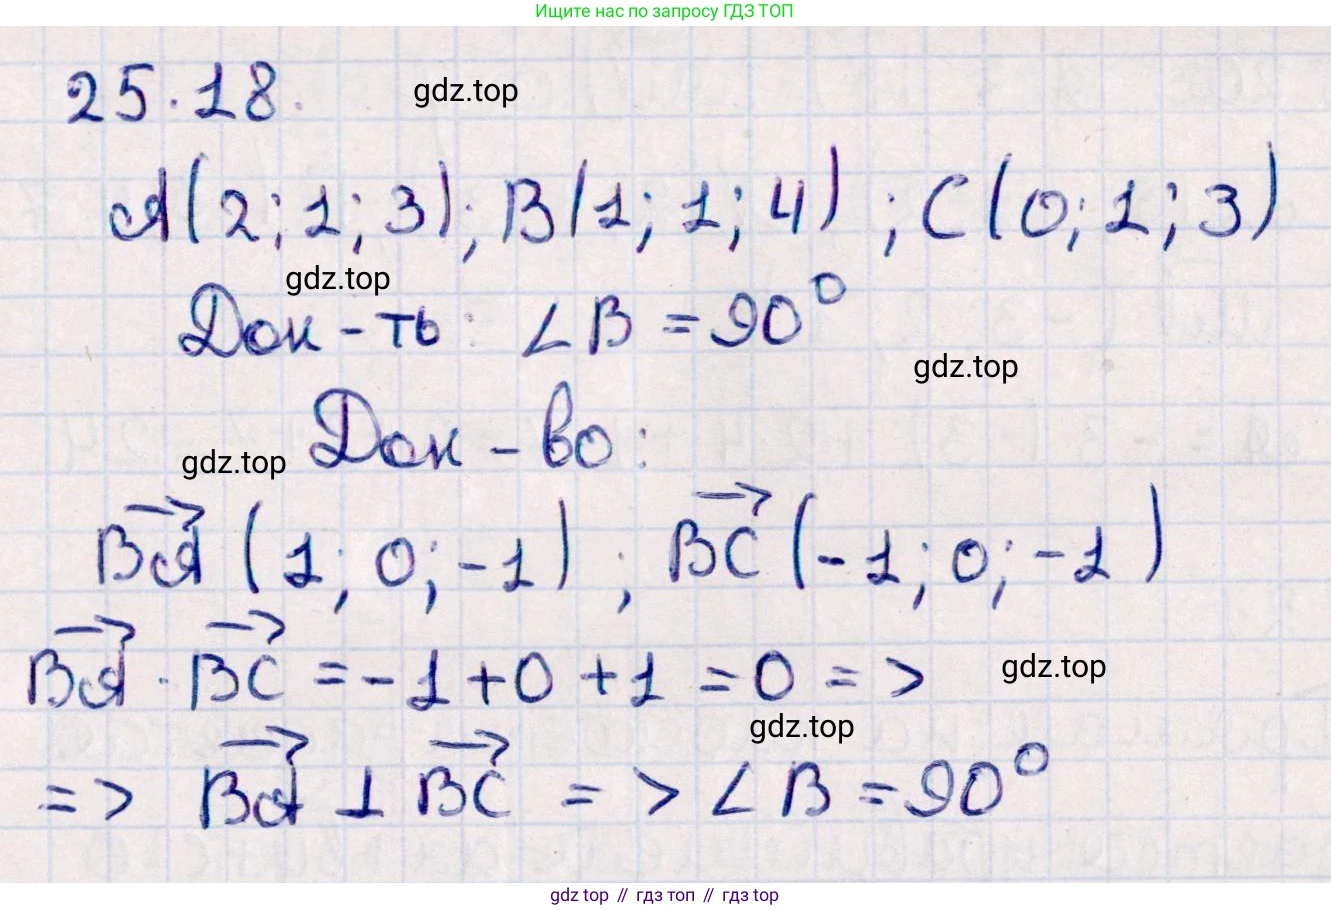 Ищите нас по запросу ГДЗ ТОП
25.18.
gdz.top
A(2;1;3); B(1;1;4) ; C(0;1;3)
gdz.top
Док-ть: ∠B = 90°
gdz.top
Док-во:
gdz.top
BA→ (1; 0; -1) ; BC→ (-1; 0; -1)
BA→ · BC→ = -1 + 0 + 1 = 0 =>
gdz.top
gdz.top
=> BA→ ⊥ BC→ => ∠B = 90°
gdz top // гдз топ // гдз top